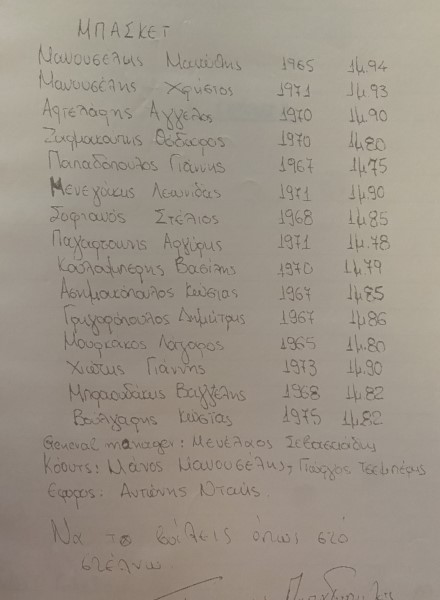 ΜΠΑΣΚΕΤ
Μανουσέλης Μανώλης 1965 1μ.94
Μανουσέλης Χρήστος 1971 1μ.93
Αγγελος 1970 1μ.90
Θόδωρος 1970 1μ.80
Παπαδόπουλος Γιάννης 1967 1μ.75
Μενεγάκης Λεωνίδας 1971 1μ.90
Σοφιανός Στέλιος 1968 1μ.85
Αργύρης 1971 1μ.78
Καλαμπερης Βασίλης 1970 1μ.79
Ασημακόπουλος Κώστας 1967 1μ.85
Γρηγορόπουλος Δημήτρης 1967 1μ.86
Μουρκακος Λάζαρος 1965 1μ.80
Χιώτης Γιάννης 1973 1μ.90
Μπαουδάκης Βαγγέλης 1968 1μ.82
Βούλγαρης Κώστας 1975 1μ.82
General manager: Μενέλαος
Κόουτς: Μάνος Μανουσέλης, Γιώργος Τσεμπέρης
Εφορος: Αντώνης Ντακης.
Να το βάλεις όπως στο
στέλνω